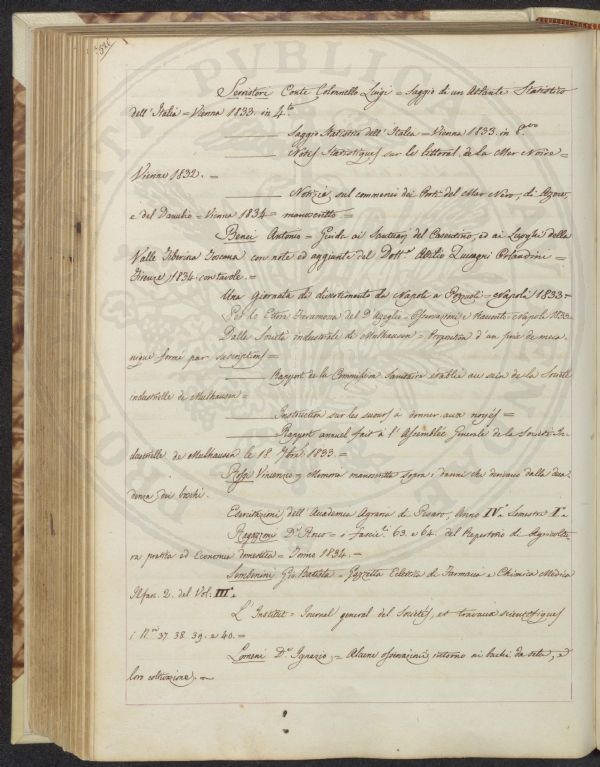 Serristori Conte Colonnello Luigi = Saggio di un Atlante Statistico
dell'Italia = Vienna 1833. in 4.to
——— Saggio Statistico dell'Italia = Vienna 1833. in 8.vo
——— Notes Statistiques sur le littoral de la Mer Noire =
Vienne 1832. =
——— Notizie sul commercio dei Porti del Mar Nero, di Azow,
e del Danubio = Vienna 1834 = manoscritto =
Benci Antonio = Guida ai Santuarj del Casentino, ed ai Luoghi della
Valle Tiberina Toscana con note ed aggiunte del Dott.r Attilio Zuccagni Orlandini =
Firenze 1834. con tavole. =
Una Giornata di divertimento da Napoli a Pozzuoli = Napoli 1833 =
Ettore Fieramosca del D'Azeglio = Osservazioni e Racconto = Napoli 1833
Dalla Société industrielle di Mulhausen = d'un prix de meca
nique formé par suscription =
——— Rapport de la Commission Sanitaire établie au sein de la Société
industrielle de Mulhausen =
——— Instruction sur les secours à donner aux noyés =
——— Rapport annuel fait à l'Assemblée Générale de la Société In
dustrielle de Mulhausen le 18. 1833. =
Vincenzo = Memoria manoscritta sopra i danni che derivano dalla deca
denza dei boschi.
Esercitazioni dell'Accademia Agraria di Pesaro, Anno IV.o Semestre I.o
Ragazzoni D.r Rocco = i fascic.li 63. e 64. del Repertorio di Agricoltu
ra pratica ed Economia domestica = Torino 1834. =
Sembenini Gio. Batista = Gazzetta Eclettica di Farmacia e Chimica Medica
Il fasc. 2. del Vol. III.o
L'Institut = Journal general des Societés, et travaux scientifiques
i N.ri 37. 38. 39. e 40. =
Lomeni D.r Ignazio = Alcune osservazioni intorno ai bachi da seta, e
loro coltivazione. =